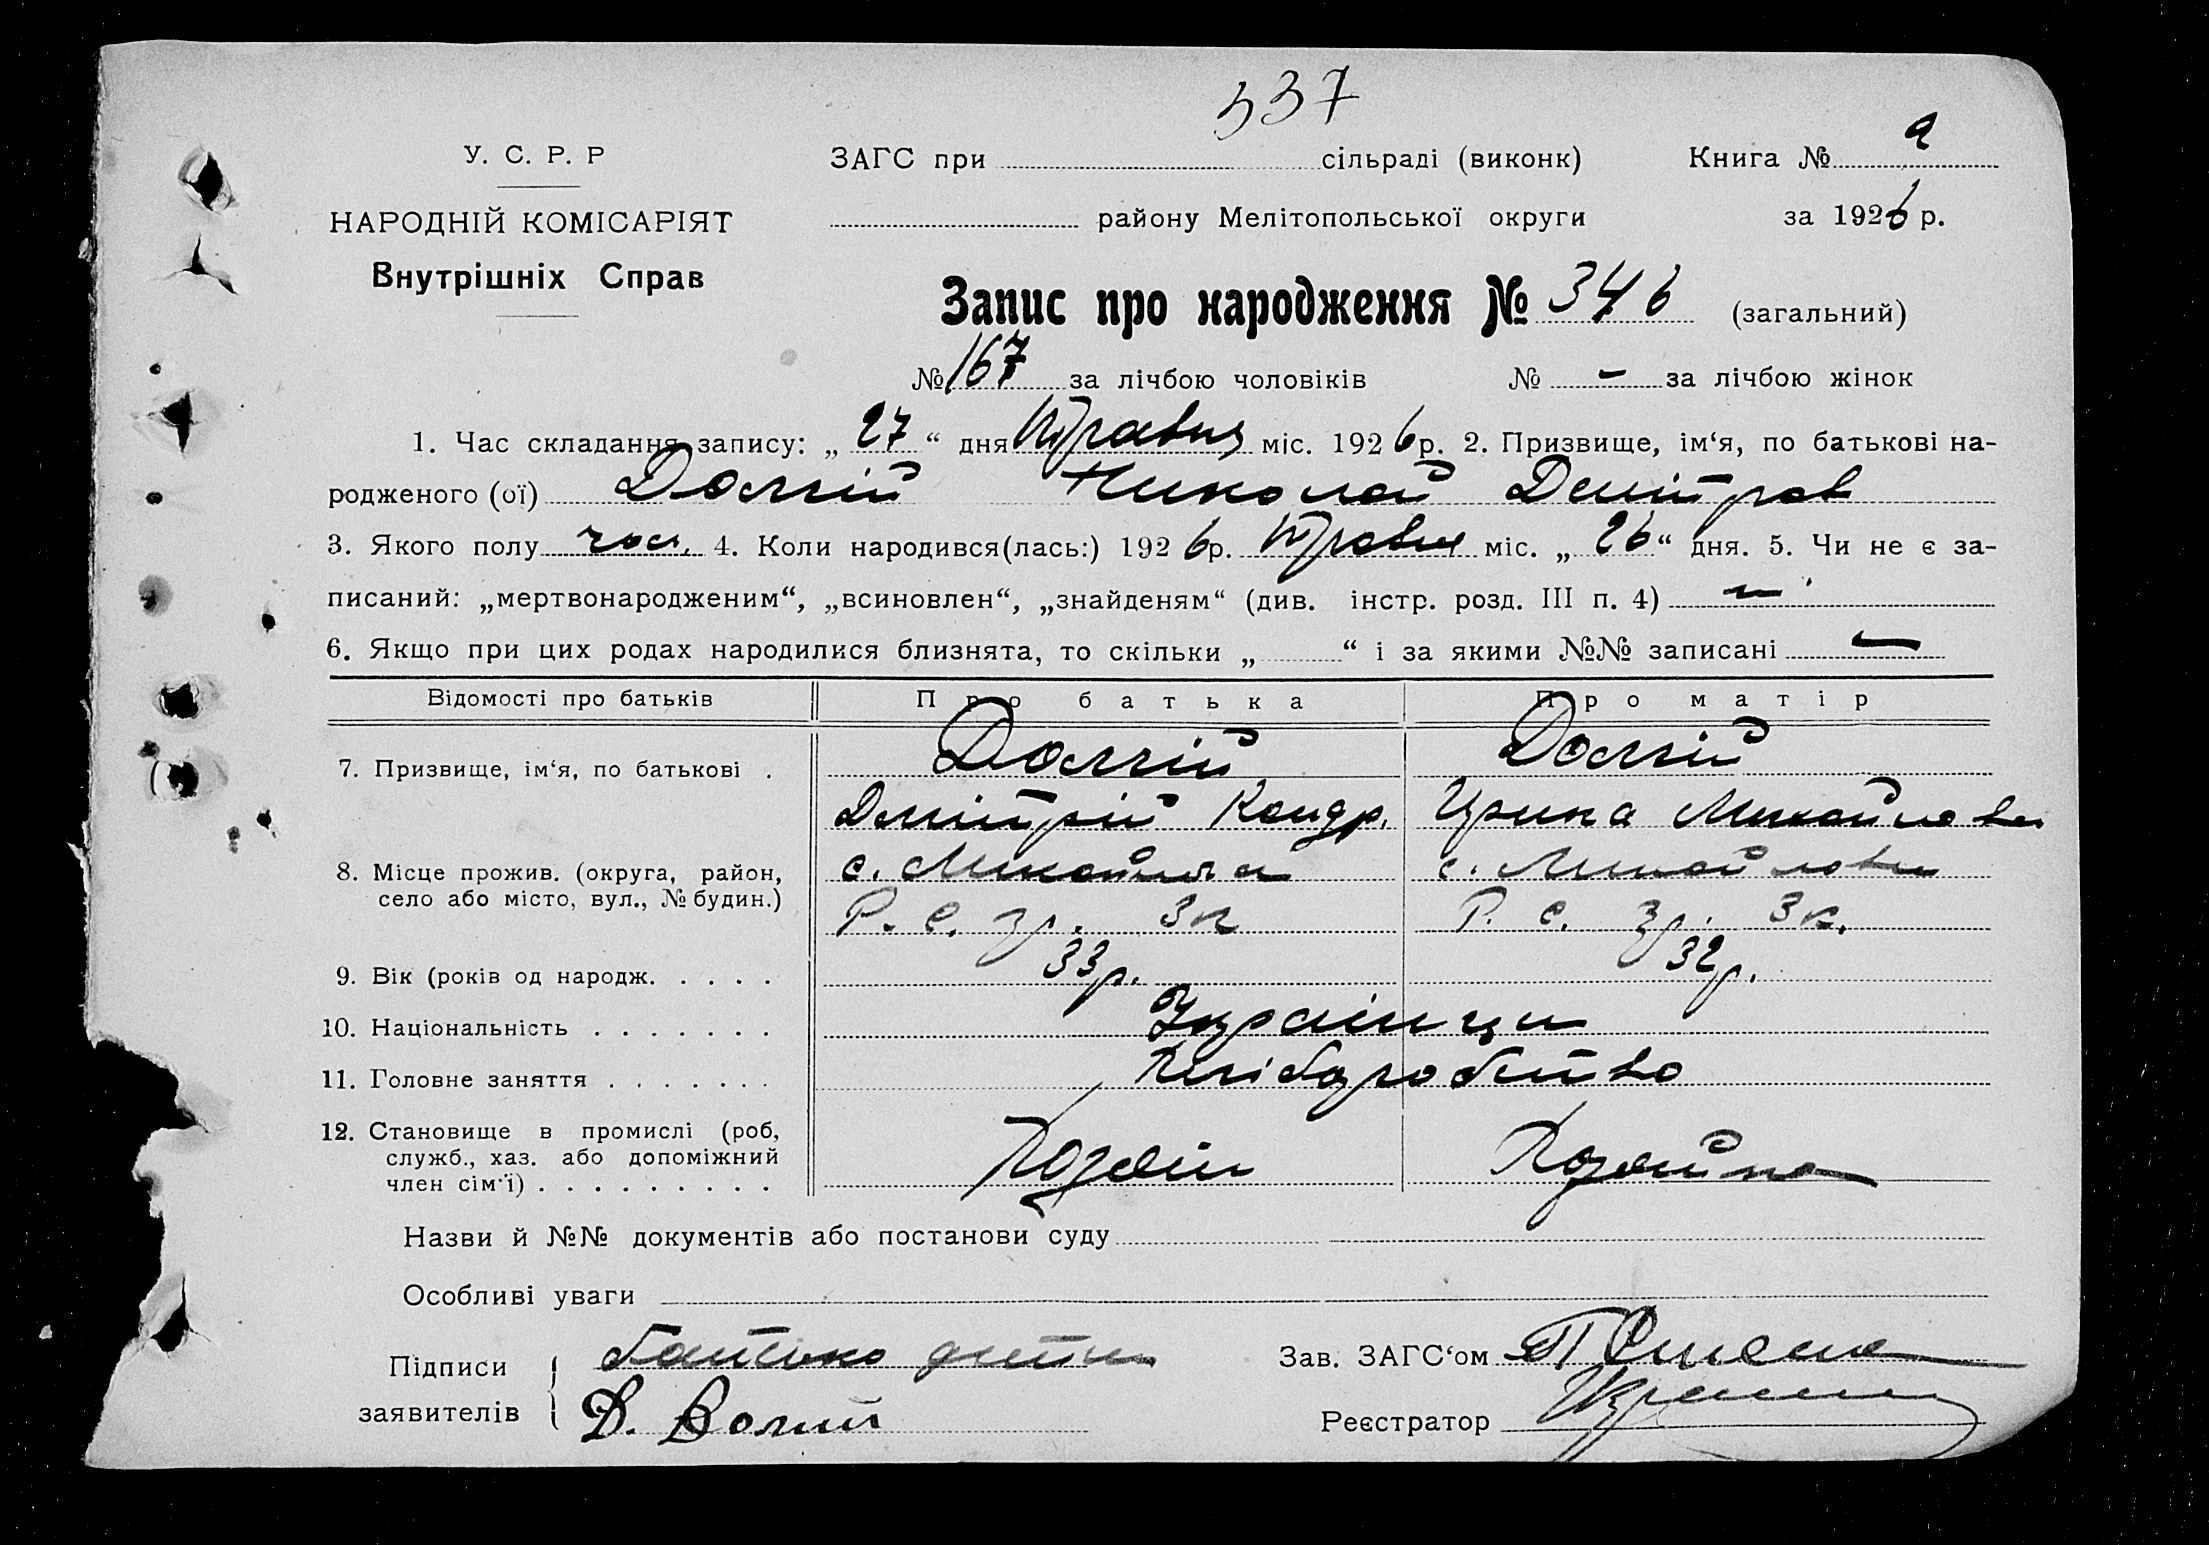 337
У. С. Р. Р
ЗАГС при сільраді (виконк)
Книга №
НАРОДНІЙ КОМІСАРІЯТ
району Мелітопольської округи
за 1926 р.
Внутрішніх Справ
Запис про народження № 346 (загальний)
№ 167 за лічбою чоловіків № - за лічбою жінок
1. Час складання запису: „ 27 “ дня Травня міс. 1926 р. 2. Призвище, ім‘я, по батькові на-
родженого (ої) Долгій Николай Дмітров
3. Якого полу чол. 4. Коли народився(лась:) 1926 р. Травня міс. „ 26 “ дня. 5. Чи не є за-
писаний: „мертвонародженим“, „всиновлен“, „знайденям“ (див. інстр. розд. III п. 4) —
6. Якщо при цих родах народилися близнята, то скільки „ “ і за якими №№ записані —
Відомості про батьків Про батька Про матір
7. Призвище, ім‘я, по батькові . Долгій Долгій
Дмітрій Кондр. Ирина Михайловн
8. Місце прожив. (округа, район, с. Михайлівка с. Михайловка
село або місто, вул., № будин.) Р. С. 3р. 3к Р. С. 3р. 3к.
9. Вік (років од народж. . . . . 33р. 32р.
10. Національність . . . . . . . Українци
11. Головне заняття . . . . . . . Хліборобство
12. Становище в промислі (роб,
служб., хаз. або допоміжний Хозяїн Хозяйка
член сім'ї) . . . . . . . . .
Назви й №№ документів або постанови суду
Особливі уваги
Підписи заявителів { Батько дитини
Д. Долгий
Зав. ЗАГС‘ом
Реєстратор